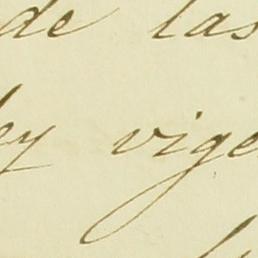 de las
ey vige